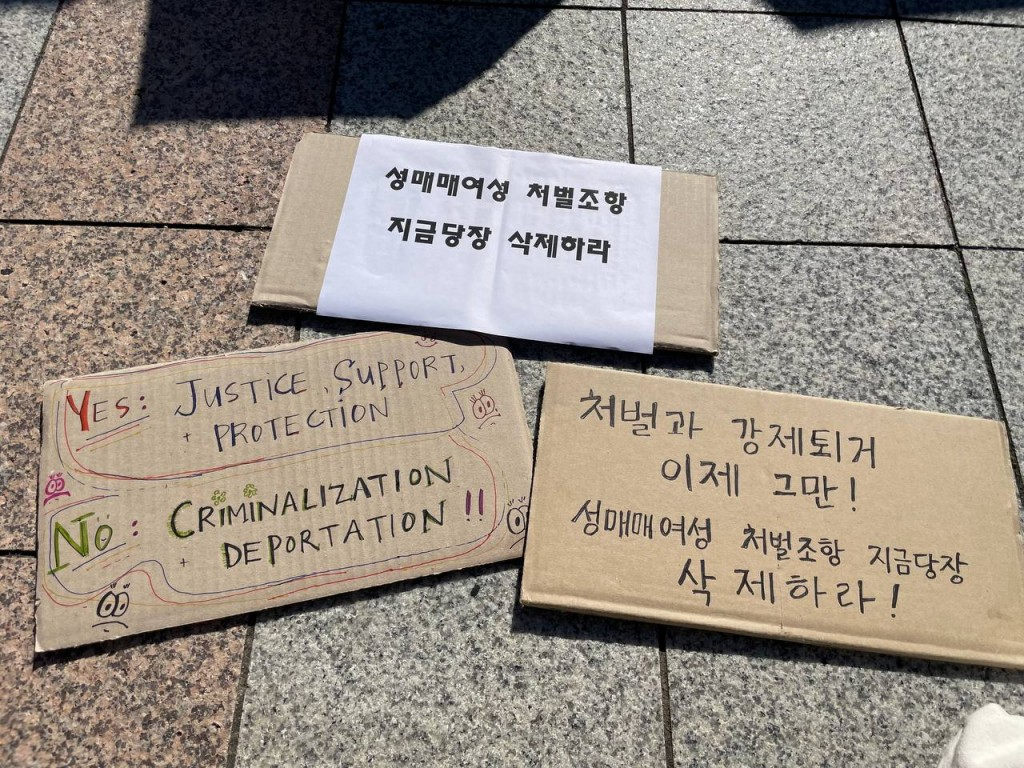 성매매여성 처벌조항
지금당장 삭제하라
YES: JUSTICE, SUPPORT,
+ PROTECTION
NO: CRIMINALIZATION
+ DEPORTATION !!
처벌과 강제퇴거
이제 그만!
성매매여성 처벌조항 지금당장
삭제하라!